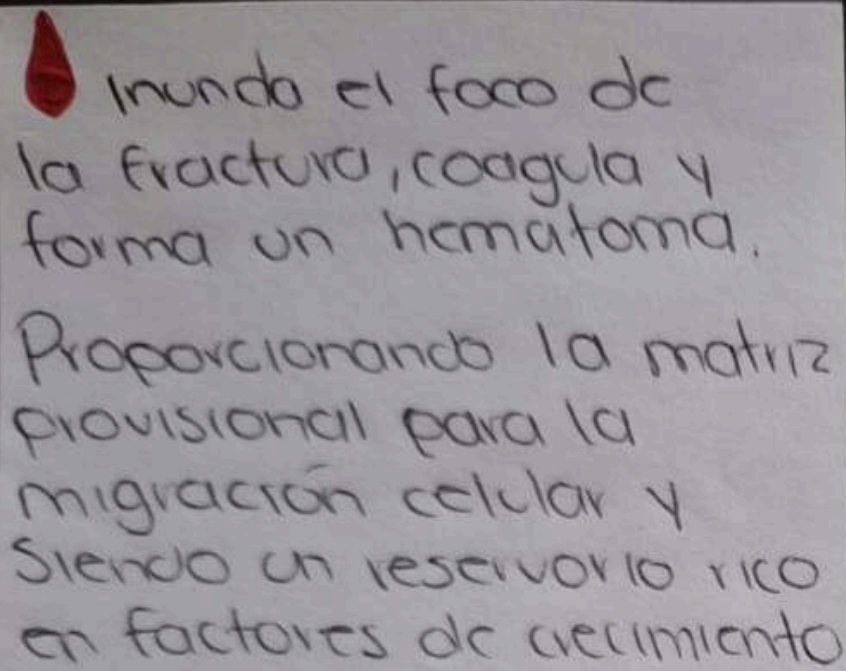 Inunda el foco de
la fractura, coagula y
forma un hematoma.
Proporcionando la matriz
provisional para la
migración celular y
siendo un reservorio rico
en factores de crecimiento